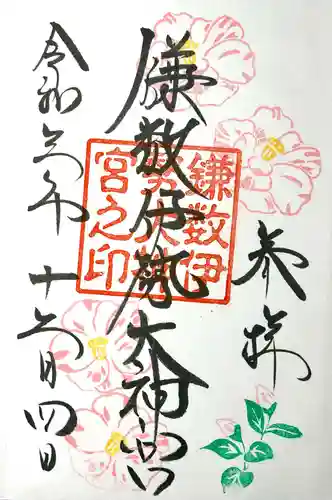 奉拝
鎌数伊勢大神宮
鎌数伊
勢大神
宮之印
令和六年 十二月四日